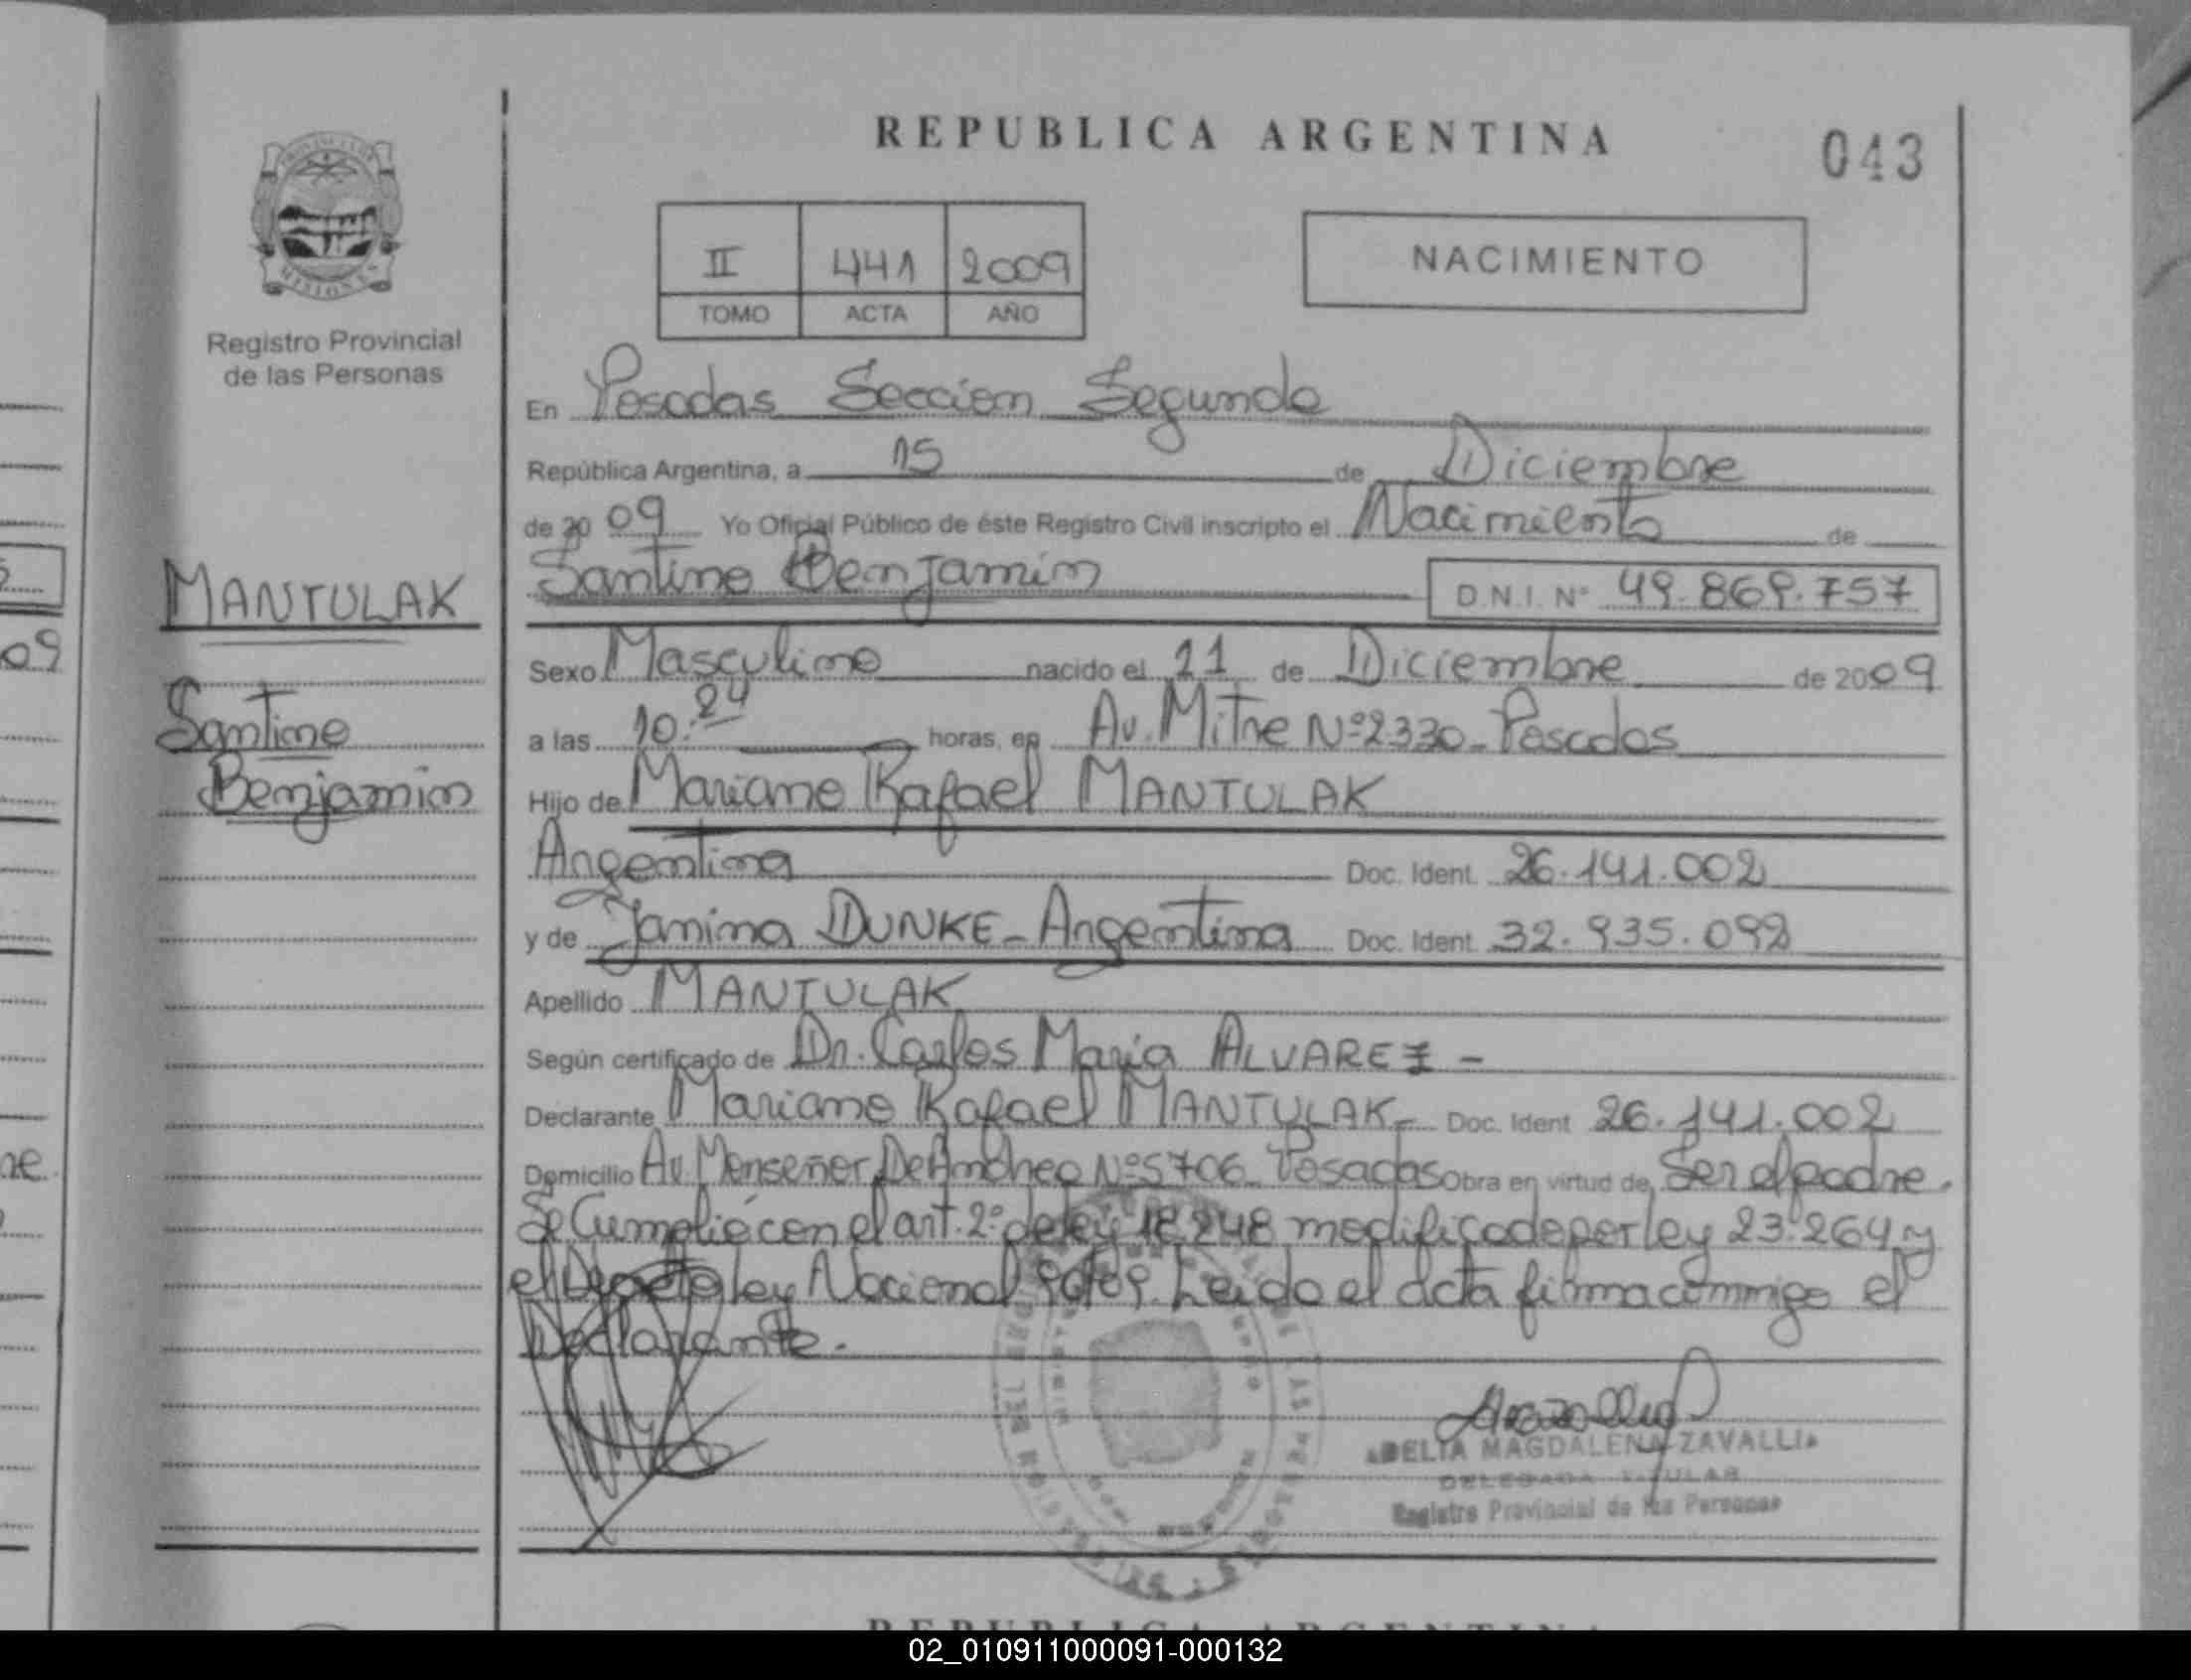 REPUBLICA ARGENTINA
043
PROVINCIA DE
MISIONES
Registro Provincial
de las Personas
II 441 2009
TOMO ACTA AÑO
NACIMIENTO
En Posadas Seccion Segunda
República Argentina, a 15 de Diciembre
de 20 09 Yo Oficial Público de éste Registro Civil inscripto el Nacimiento de
Santino Benjamin D.N.I. Nº 49.869.757
MANTULAK
Santino
Benjamin
Sexo Masculino nacido el 11 de Diciembre de 2009
a las 10:24 horas, en Av. Mitre Nº 2330 - Posadas
Hijo de Mariano Rafael MANTULAK
Argentina Doc. Ident. 26.141.002
y de Janina DUNKE - Argentina Doc. Ident. 32.935.092
Apellido MANTULAK
Según certificado de Dr. Carlos Maria ALVAREZ -
Declarante Mariano Rafael MANTULAK - Doc. Ident 26.141.002
Domicilio Av. Monseñor DeAndrea Nº 5706 Posadas Obra en virtud de Ser el padre.
Se Cumplió con el art. 2º de ley 18.248 modificado por ley 23.264 y
el Decreto ley Nacional Leido el acta firma conmigo el
Declarante.
DELIA MAGDALENA ZAVALLIA
DELEGADA TITULAR
Registro Provincial de las Personas
REPUBLICA ARGENTINA
02_010911000091-000132